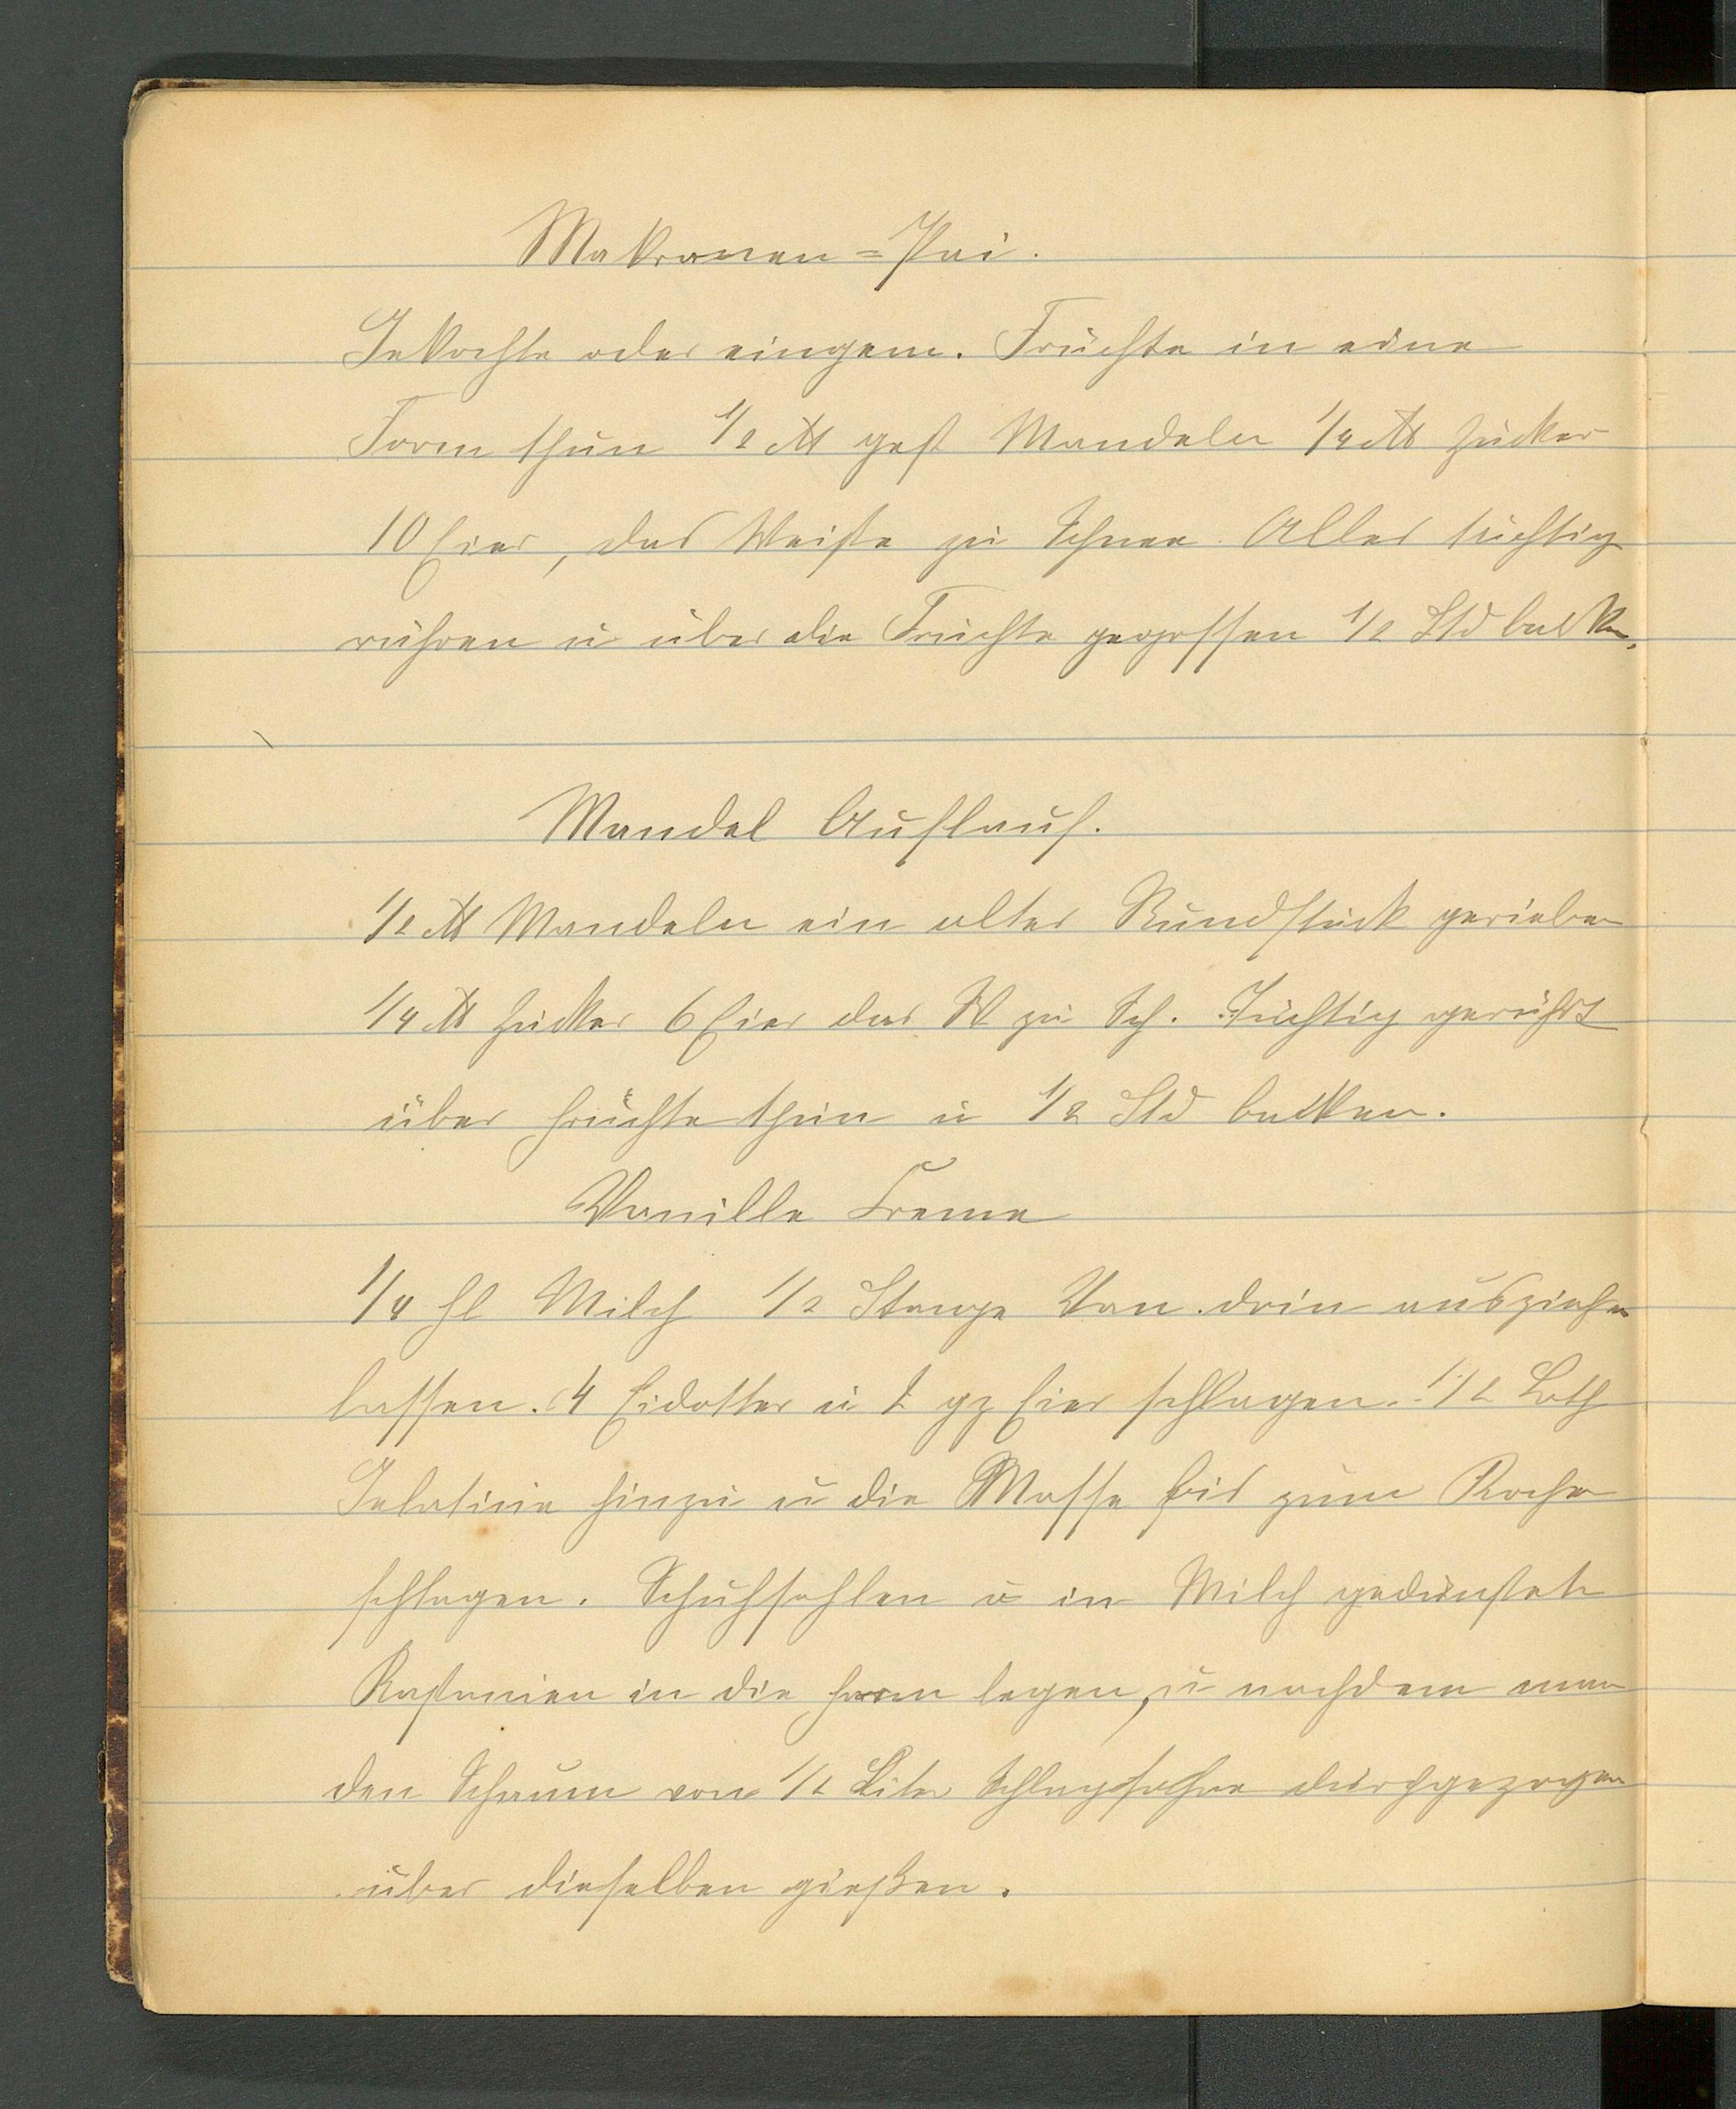 Makronen=Pai.
Gekochte oder eingem. Früchte in eine
Form thun 1/2 ℔ gest Mandeln 1/4 ℔ Zucker
10 Eier, das Weiße zu Schnee. Alles tüchtig
rühren u über die Früchte gegossen 1/2 Std backen.
Mandel Auflauf.
1/2 ℔ Mandeln ein altes Rundstück gerieben
1/4 ℔ Zucker 6 Eier das W zu Sch. Tüchtig gerührt
über Früchte thun u 1/2 Std backen.
Vanille Creme
1/4 Milch 1/2 Stange Van. drin ausziehen
lassen. 4 Eidotter u 2 gz Eier schlagen. 1/2 Loth
Gelatine hinzu u die Masse bis zum Kochen
schlagen. Schuhsohlen u in Milch gedünstete
Kastanien in die Form legen, u nachdem man
den Schaum von 1/2 Liter Schlagsahne durchgezogen
über dieselben gießen.